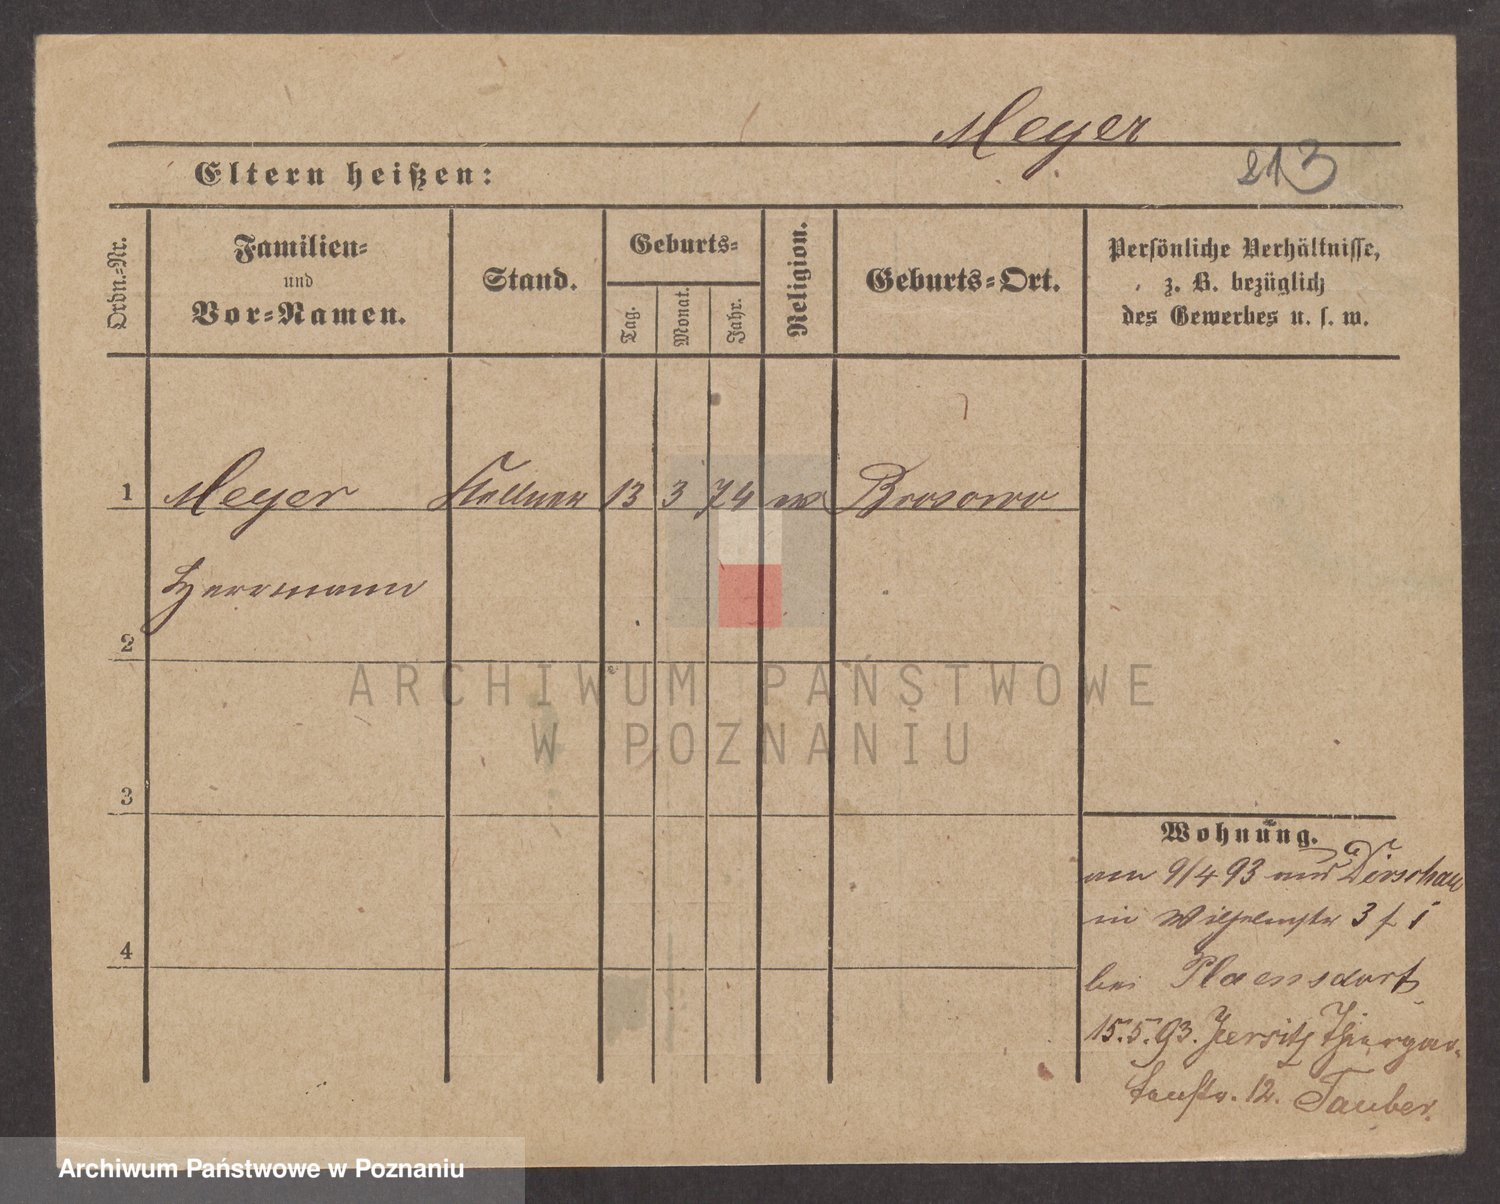 Meyer
213
Eltern heißen:
Ordn.-Nr.
Familien-
und
Vor-Namen.
Stand.
Geburts-
Tag.
Monat.
Jahr.
Religion.
Geburts-Ort.
Persönliche Verhältnisse,
z. B. bezüglich
des Gewerbes u. s. w.
1 Meyer Kellner 13 3 74 ev Brosowo
Herrmann
2
3
4
Wohnung.
am 9/4 93 aus Dirschau
in Wilhelmstr 3 f 1
bei Plaensdorf
15.5.93. Jersitz Thiergar-
tenstr. 12. Tauber.
ARCHIWUM PAŃSTWOWE
W POZNANIU
Archiwum Państwowe w Poznaniu